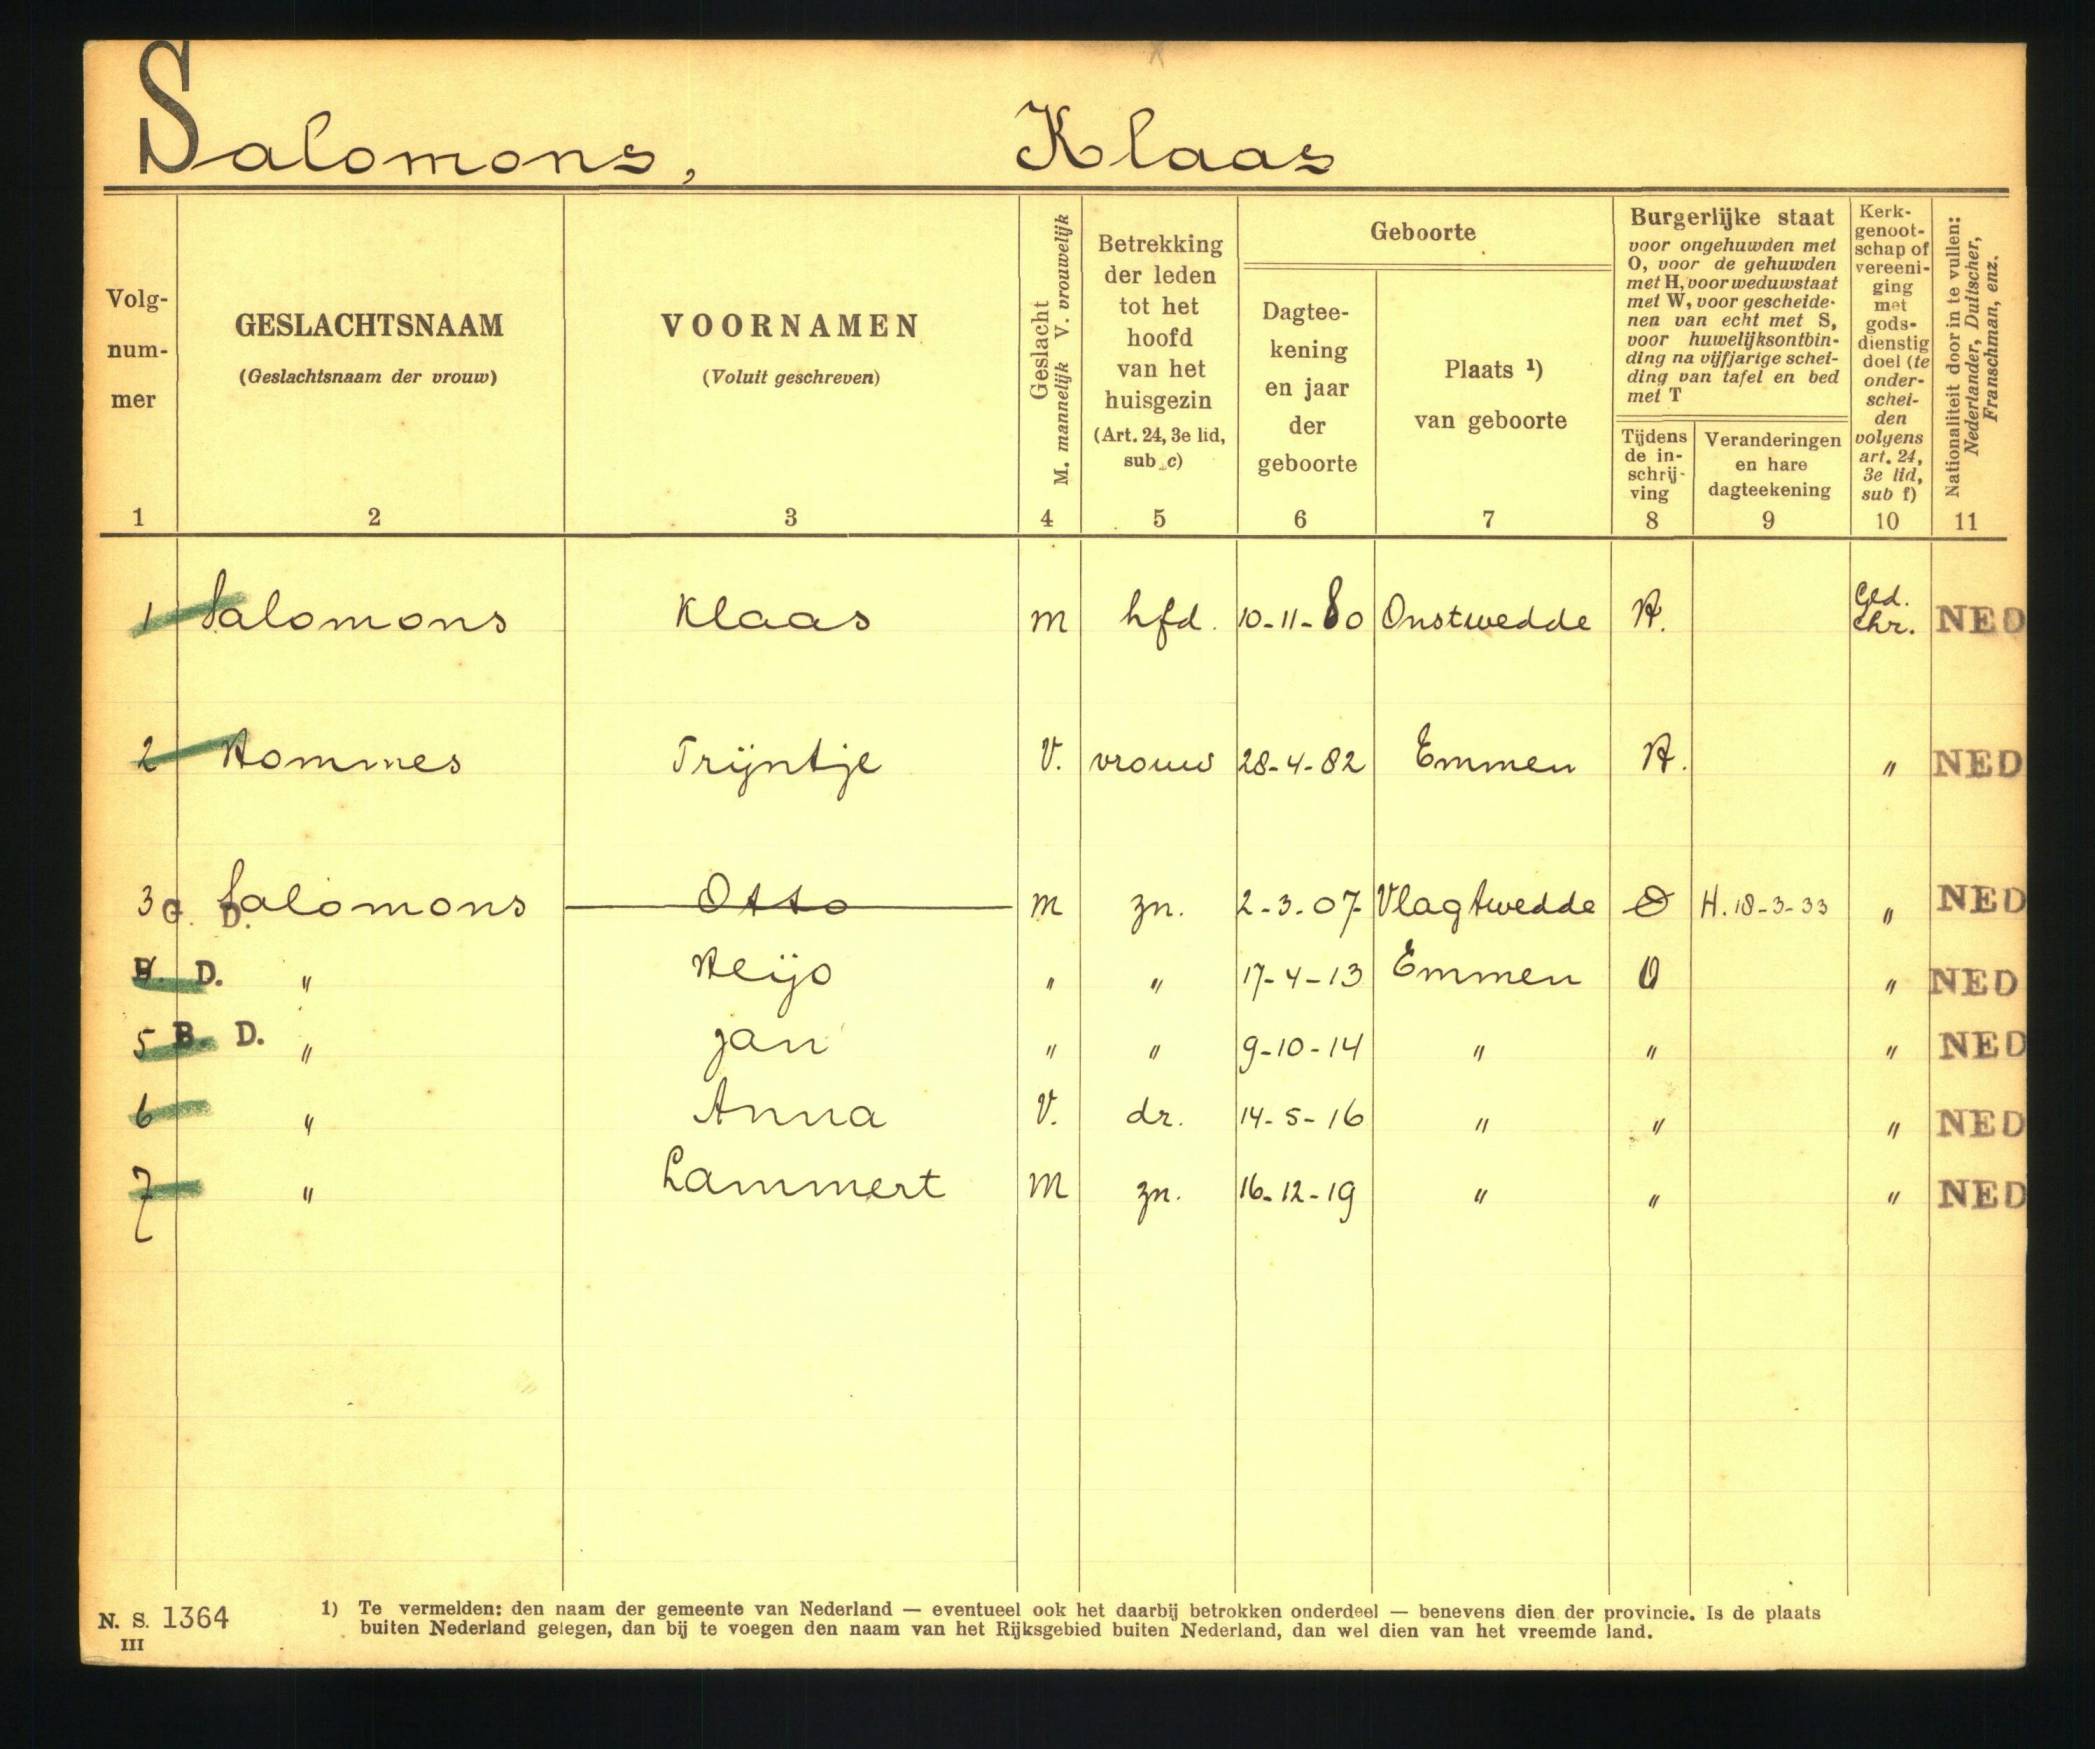 Salomons, Klaas
Volg-
num-
mer
1
GESLACHTSNAAM
(Geslachtsnaam der vrouw)
2
VOORNAMEN
(Voluit geschreven)
3
Geslacht
M. mannelijk V. vrouwelijk
4
Betrekking
der leden
tot het
hoofd
van het
huisgezin
(Art. 24, 3e lid,
sub c)
5
Geboorte
Dagtee-
kening
en jaar
der
geboorte
6
Plaats ¹)
van geboorte
7
Burgerlijke staat
voor ongehuwden met
O, voor de gehuwden
met H, voor weduwstaat
met W, voor gescheide-
nen van echt met S,
voor huwelijksontbin-
ding na vijfjarige schei-
ding van tafel en bed
met T
Tijdens
de in-
schrij-
ving
8
Veranderingen
en hare
dagteekening
9
Kerk-
genoot-
schap of
vereeni-
ging
met
gods-
dienstig
doel (te
onder-
schei-
den
volgens
art. 24,
3e lid,
sub f)
10
Nationaliteit door in te vullen:
Nederlander, Duitscher,
Franschman, enz.
11
1 Salomons Klaas m hfd. 10-11-80 Onstwedde H. Ged. Chr. NED
2 Hommes Trijntje V. vrouw 28-4-82 Emmen H. " NED
3 G. D. Salomons Otto m zn. 2-3-07 Vlagtwedde O H. 18-3-33 " NED
D. " Heijo " " 17-4-13 Emmen O " NED
5 B. D. " Jan " " 9-10-14 " " " NED
6 " Anna V. dr. 14-5-16 " " " NED
7 " Lammert m zn. 16-12-19 " " " NED
N. S. 1364
III
1) Te vermelden: den naam der gemeente van Nederland — eventueel ook het daarbij betrokken onderdeel — benevens dien der provincie. Is de plaats
buiten Nederland gelegen, dan bij te voegen den naam van het Rijksgebied buiten Nederland, dan wel dien van het vreemde land.